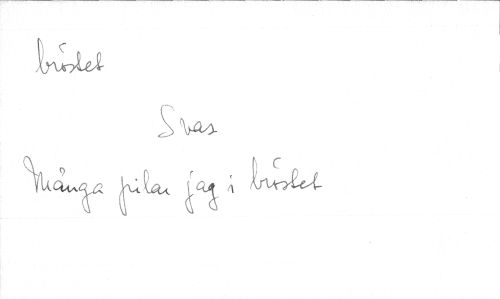 bröstet
Svar
Många pilar jag i bröstet